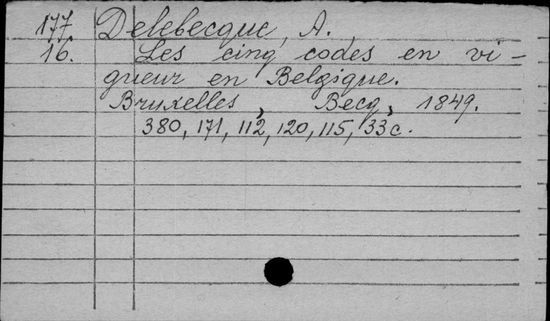 177 Delebecque, A.
16. Les cinq codes en vi-
gueur en Belgique.
Bruxelles, Becq, 1849.
380, 171, 112, 120, 115, 33c.